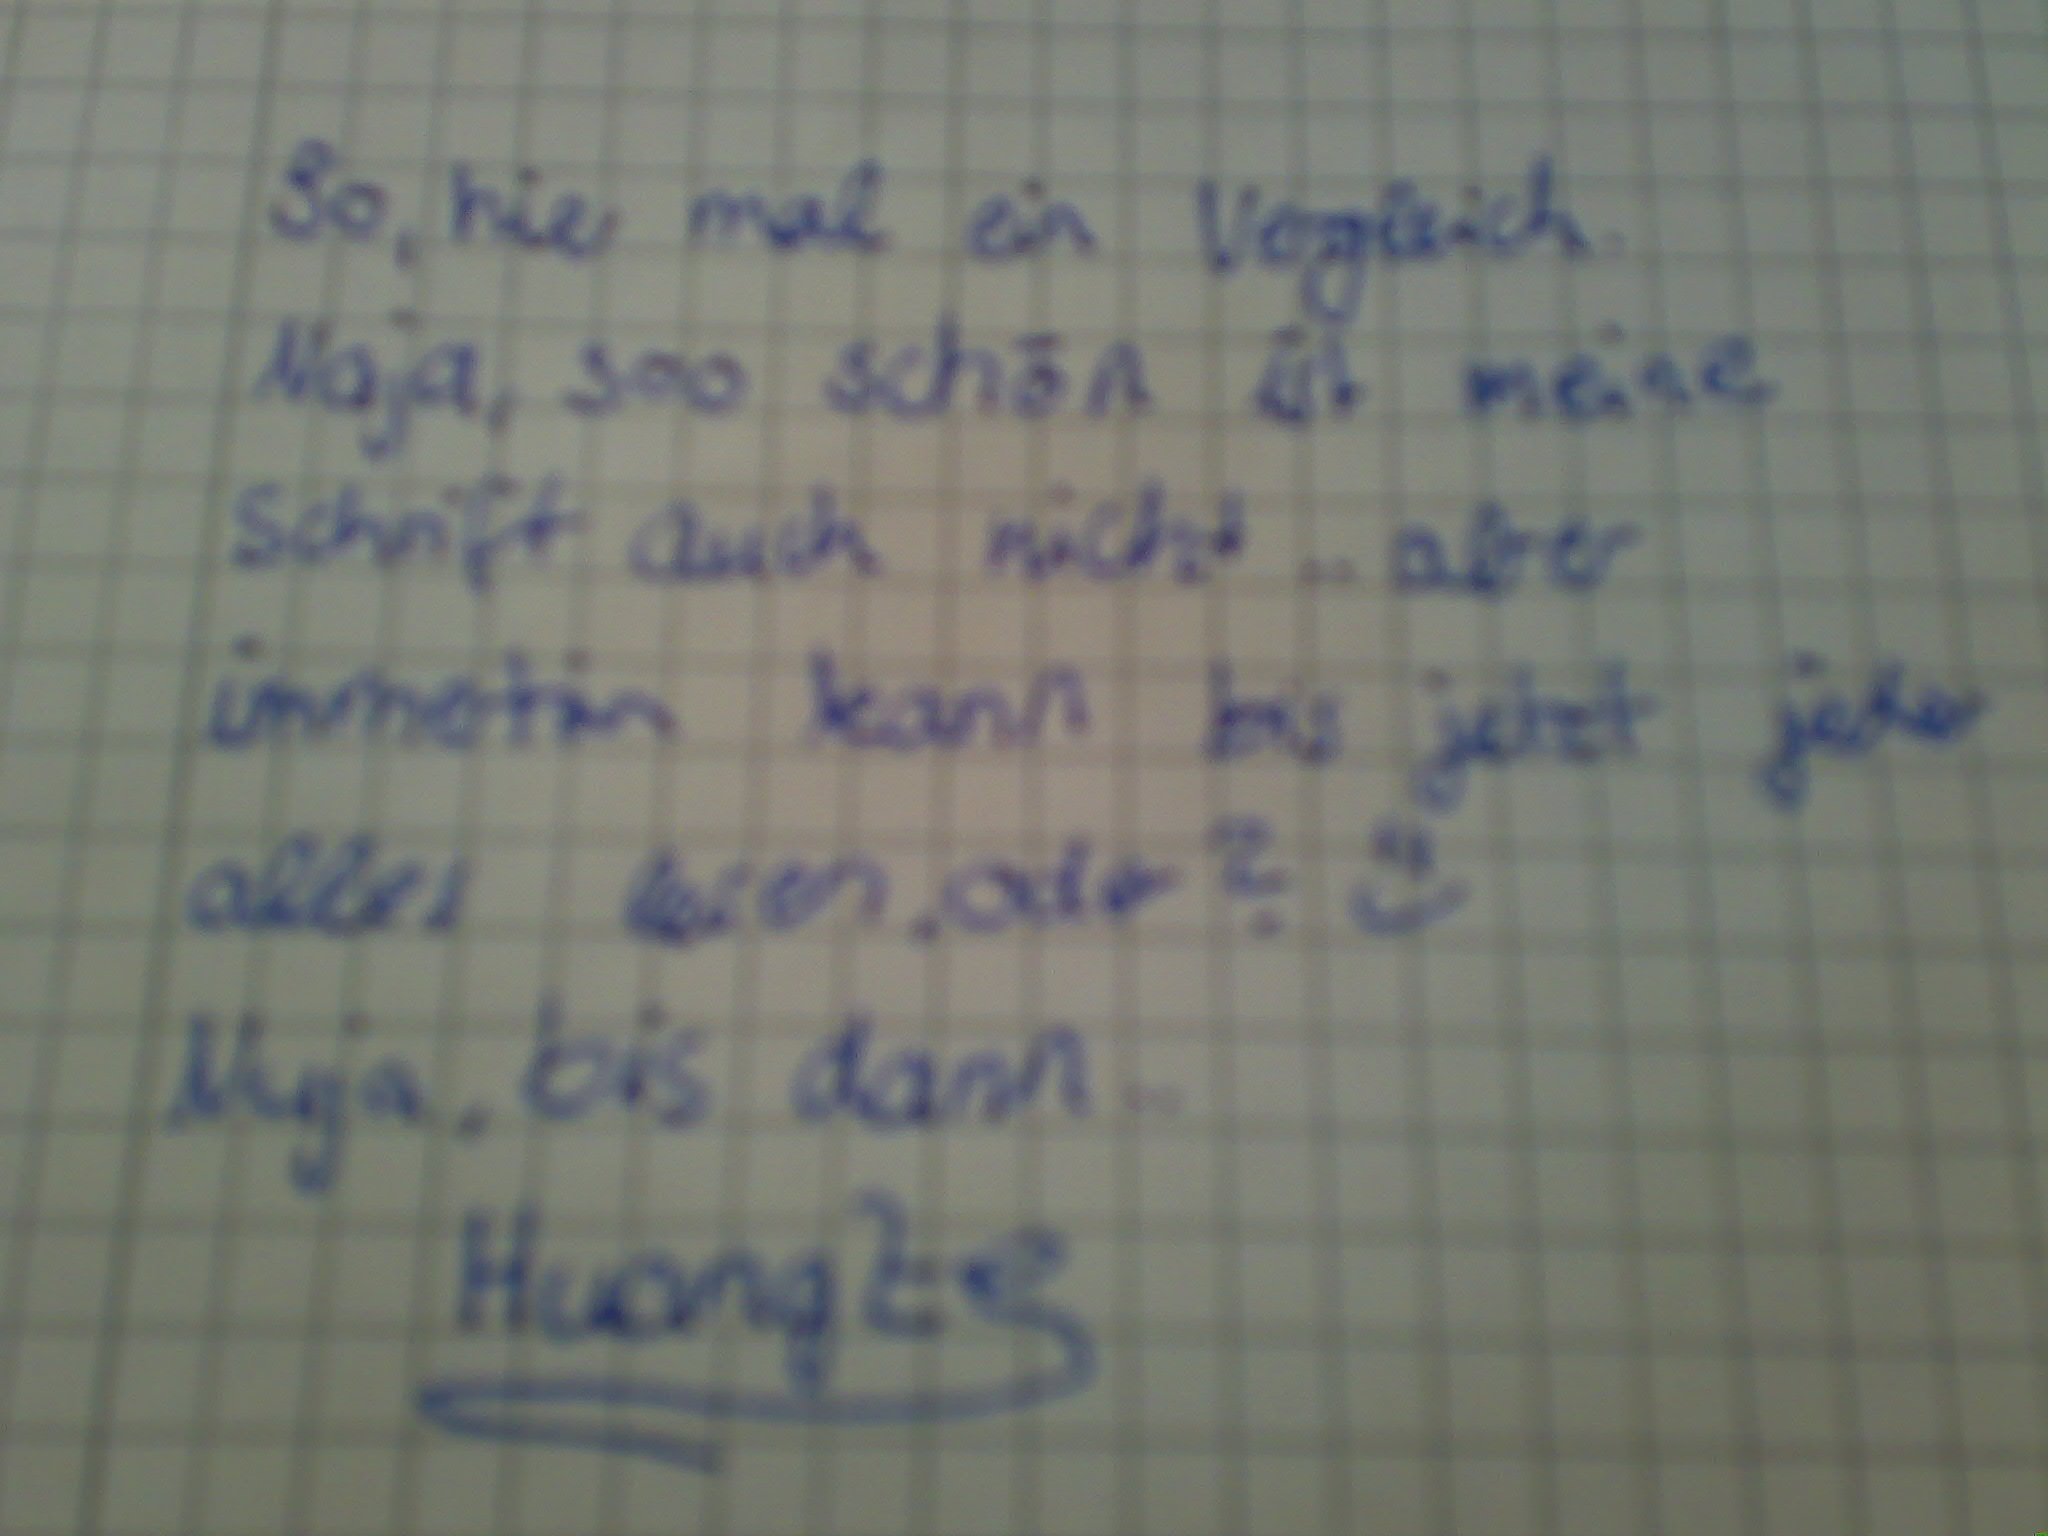 So, hier mal ein Vergleich.
Naja, soo schön ist meine
Schrift auch nicht.. aber
immerhin kann bis jetzt jeder
alles lesen, oder? =)
Naja, bis dann..